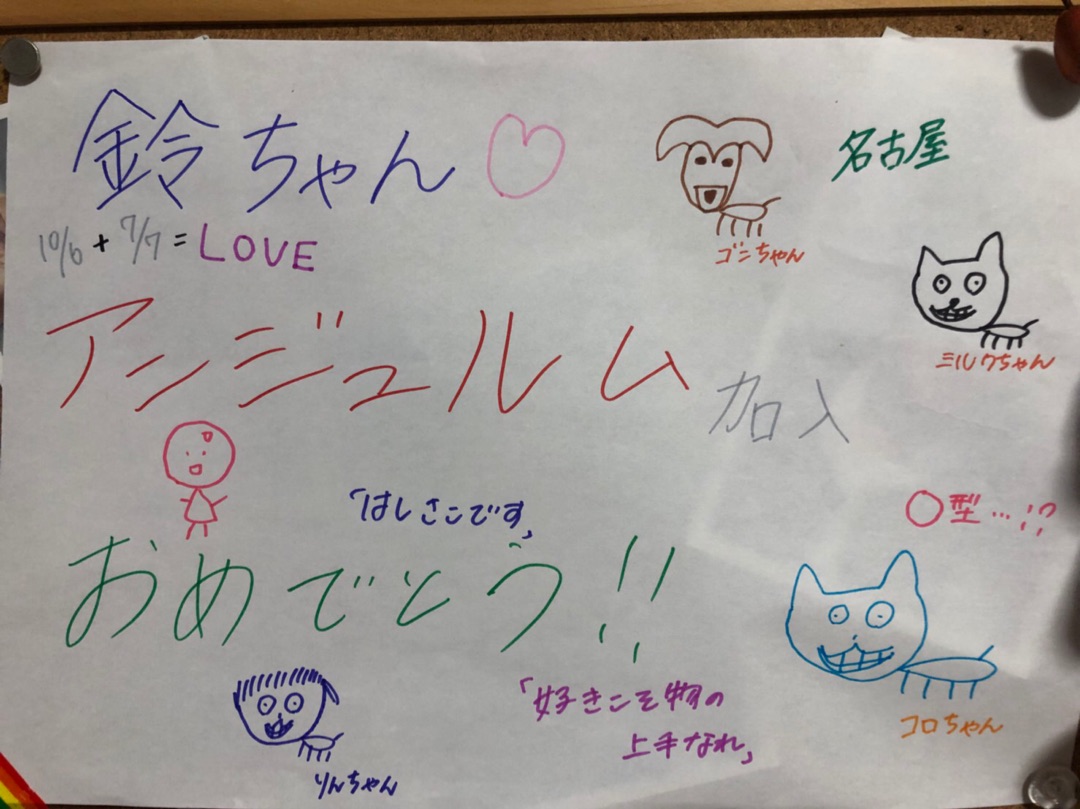 鈴ちゃん♡
名古屋
ゴンちゃん
10/6 + 7/7 = LOVE
ミルクちゃん
アンジュルム
加入
「はしさこです」
○型…!?
おめでとう!!
「好きこそ物の
上手なれ」
コロちゃん
りんちゃん